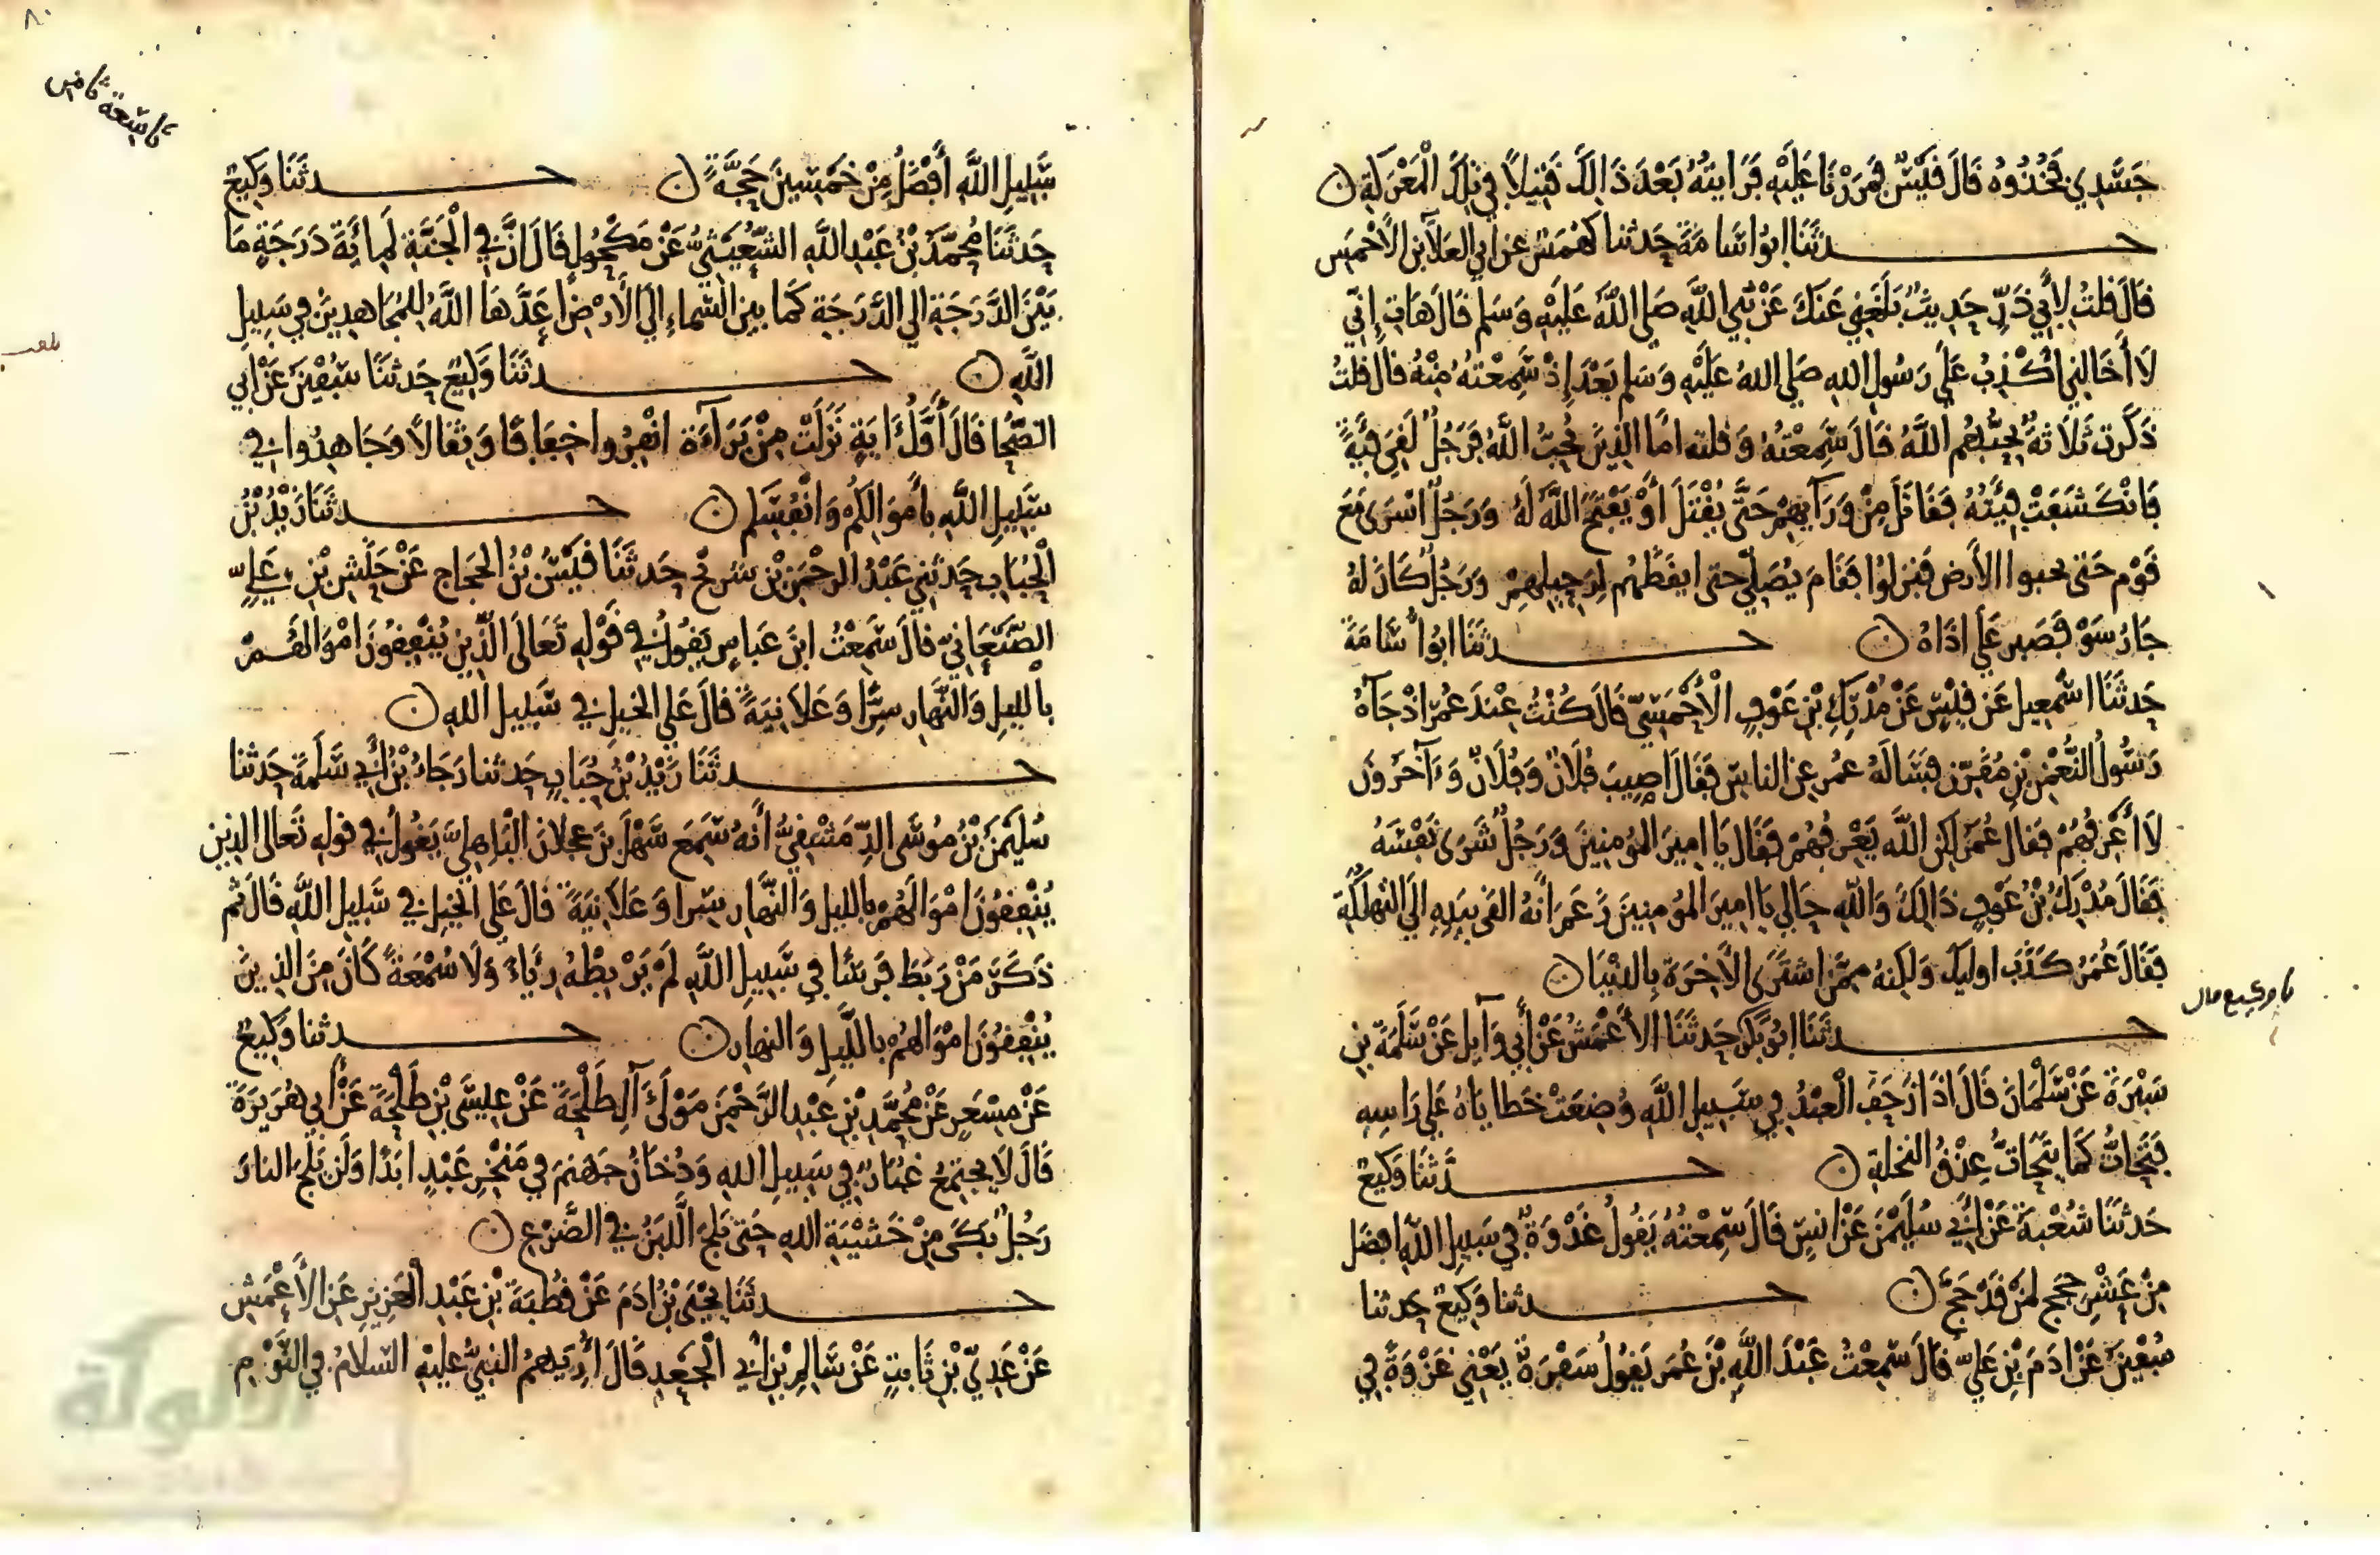 جسدي فخذوه قال قيس فمررنا عليه فرايته بعد ذالك قتيلا في تلك المعركة ن
حدثنا ابو اسامة حدثنا كهمس عن ابي العلا بن الاحمس
قال قلت لأبي ذر حديث بلغني عنك عن نبي الله صلى الله عليه وسلم قال هات إني
لا أخالني أكذب على رسول الله صلى الله عليه وسلم بعد إذ سمعته منه قال قلت
ذكرت ثلاثة يحبهم الله قال سمعته وقلته اما الذين يحب الله فرجل لقي فية
فانكشفت فئته فقاتل من ورآيهم حتى يقتل أو يفتح الله له ورجل اسرى مع
قوم حتى يحبوا الأرض فنزلوا فقام يصلي حتى ايقظهم لرحيلهم ورجل كان له
جار سو فصبر على اذاه ن حدثنا ابو اسامة
حدثنا اسمعيل عن قيس عن مدرك بن عوف الأحمسي قال كنت عند عمر اذ جآه
رسول النعمن بن مقرن فساله عمر عن الناس فقال اصيب فلان وفلان وءآخرون
لا أعرفهم فقال عمر لكن الله يعرفهم فقال يا امير المومنين ورجل شرى نفسه
فقال مدرك بن عوف ذالك والله خالي يا امير المومنين زعم انه القى بيده الى التهلكة
فقال عمر كذب اوليك ولكنه ممن اشترى الآخرة بالدنيا ن
حدثنا ابو بكر حدثنا الأعمش عن أبي وآيل عن سلمة بن
نا وكيع قال
سبرة عن سلمان قال اذا رجف العبد في سبيل الله وضعت خطاياه على راسه
فتحات كما يتحات عذق النخلة ن حدثنا وكيع
حدثنا شعبة عن أبي سليمن عن انس قال سمعته يقول غدوة في سبيل الله افضل
من عشر حجج لمن قد حج ن حدثنا وكيع حدثنا
سفين عن ادم بن علي قال سمعت عبد الله بن عمر يقول سفرة يعني غزوة في
سبيل الله أفضل من خمسين حجة ن حدثنا وكيع
حدثنا محمد بن عبد الله الشعيثي عن مكحول قال ان في الجنة لمائة درجة ما
بين الدرجة الى الدرجة كما بين السماء الى الأرض اعدها الله للمجاهدين في سبيل
الله ن حدثنا وكيع حدثنا سفين عن ابي
الضحا قال أول ءاية نزلت من برآءة انفروا خفافا وثقالا وجاهدوا في
سبيل الله بأموالكم وانفسكم ن حدثنا زيد بن
الحباب حدثني عبد الرحمن بن شريح حدثنا قيس بن الحجاج عن حنش بن علي
الصنعاني قال سمعت ابن عباس يقول في قوله تعالى الذين ينفقون اموالهم
بالليل والنهار سرا وعلانية قال على الخيل في سبيل الله ن
حدثنا زيد بن حباب حدثنا رجاء بن أبي سلمة حدثنا
سليمن بن موسى الدمشقي أنه سمع سهل بن عجلان الباهلي يقول في قوله تعالى الذين
ينفقون اموالهم بالليل والنهار سرا وعلانية قال على الخيل في سبيل الله قال ثم
ذكر من ربط فرسا في سبيل الله لم يربطه رئاء ولا سمعة كان من الذين
ينفقون اموالهم بالليل والنهار ن حدثنا وكيع
عن مسعر عن محمد بن عبد الرحمن مولى آل طلحة عن عيسى بن طلحة عن أبي هريرة
قال لا يجتمع غبار في سبيل الله ودخان جهنم في منخر عبد ابدا ولن يلج النار
رجل بكى من خشية الله حتى يلج اللبن في الضرع ن
حدثنا يحيى بن ادم عن قطبة بن عبد العزيز عن الأعمش
عن عدي بن ثابت عن سالم بن أبي الجعد قال أريهم النبي عليه السلام في النوم
الألوكة